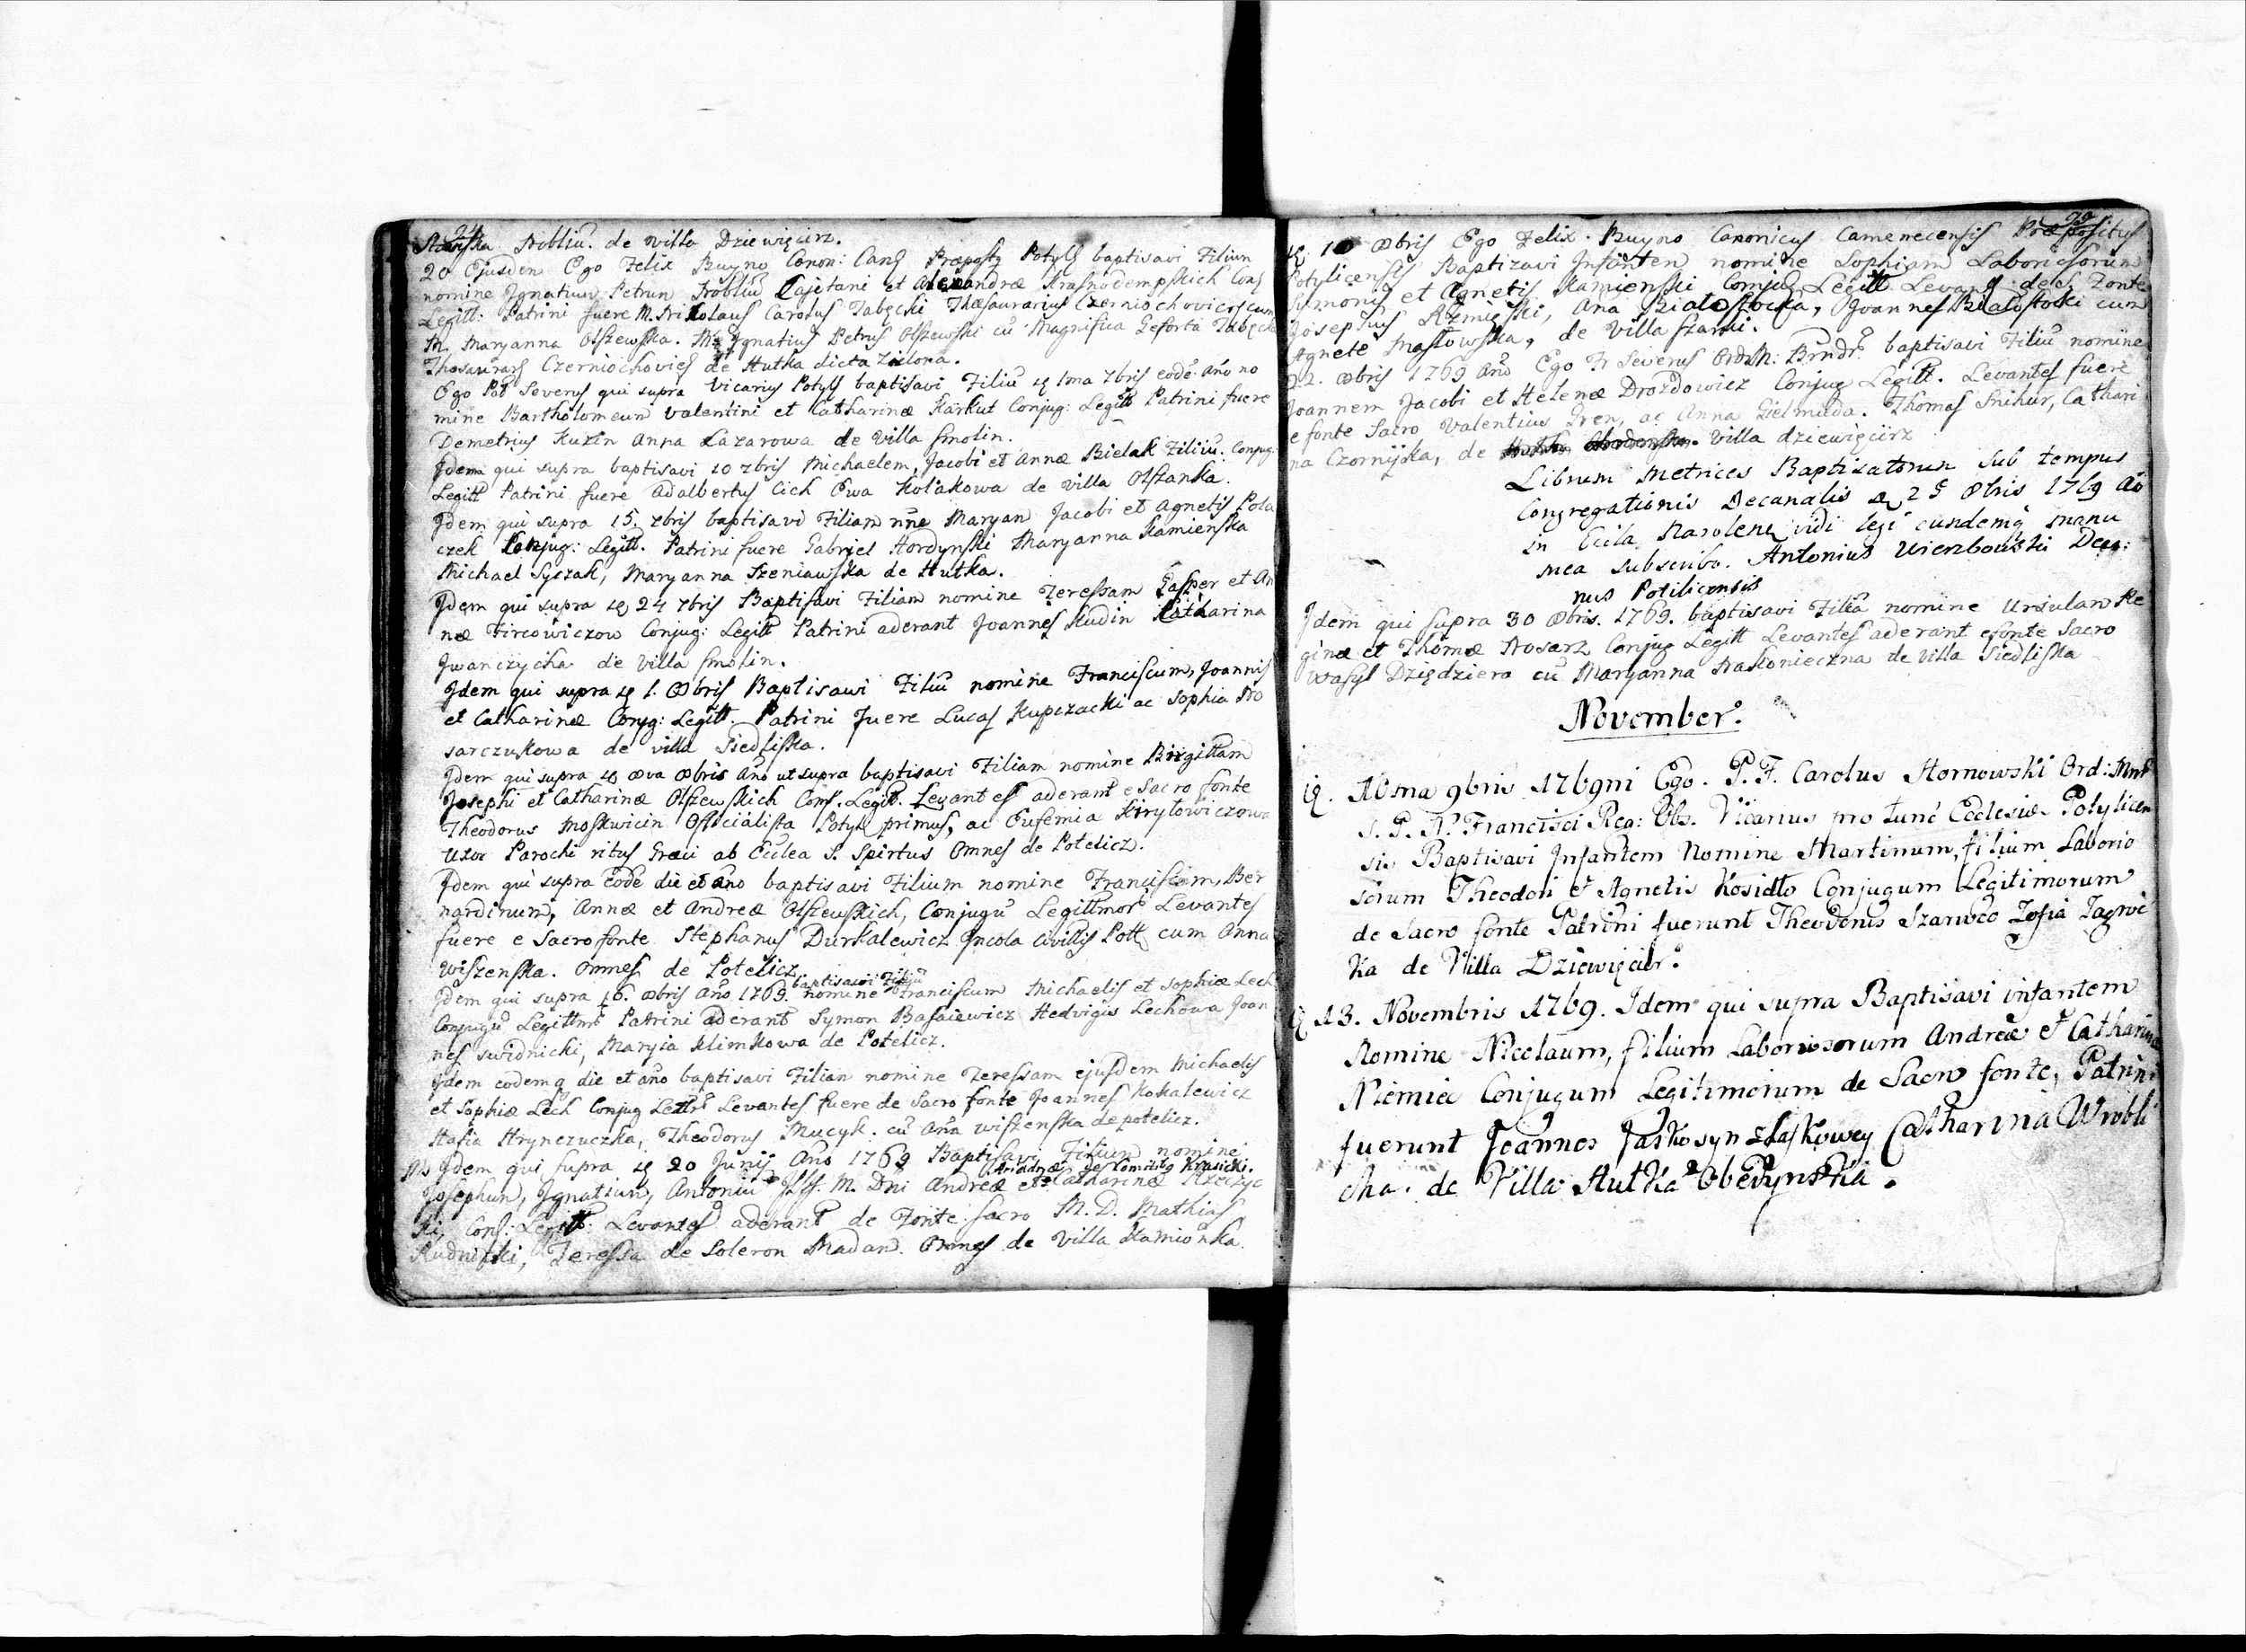 Nobliu. de villa Dziewięcirz.
20 Ejusdem Ego Felix Buyno Canon: Præposty Potyl baptisavi Filium
nomine Ignatium Petrum Nobliu Cajetani et Alexandræ Krasnodempskich Conj
Legitt: Patrini fuere M. Nikolaus Carolus Zabęcki Thæsaurarius Czerniochovicẽs cum
M. Maryanna Olszewska. Ignatius Petrus Olszewski cũ Magnifica Zabęcka
Czerniochovies de Hutka dicta Zielona.
Ego Severus qui supra Vicarius Potyls baptisavi Filiũ 1ma 7bris eodẽ año no
mine Bartholomeum Valentini et Catharinæ Karkut Conjug: Legitt Patrini fuere
Demetrius Kuzin Anna Lazarowa de Villa Smolin.
Idem qui supra baptisavi 10 7bris Michaelem, Jacobi et Annæ Bielak Filiũ. Conjug:
Legitt Patrini fuere Adalbertus Cich Ewa Kołakowa de villa Olszanka.
Idem qui supra 15. 7bris baptisavi Filiam nne Maryan Jacobi et Agnetis Pola
czek Conjug: Legitt. Patrini fuere Gabriel Hordynski Maryanna Kamienska
Michael Syczak, Maryanna Szeniawska de Hutka.
Idem qui supra 24 7bris Baptisavi Filiam nomine Teressam Gasper et An
næ Fircowiczow Conjug: Legitt Patrini aderant Joannes Kudin Katharina
Iwanczycha de villa Smolin.
Idem qui supra 1. 8bris Baptisavi Filiũ nomine Franciscum, Joannis
et Catharinæ Conjg: Legitt. Patrini fuere Lucas Kupczacki ac Sophia No
sarczukowa de villa Siedliska.
Idem qui supra 8va 8bris Año ut supra baptisavi Filiam nomine Birgittam
Josephi et Catharinæ Olszewskich Conj. Legitt. Levantes aderant e Sacro fonte
Theodorus Moskwicin Officialista Potyl primus, ac Eufemia Kiryłowiczowa
Uxor Parochi ritus Græci ab Ecclea S. Spirtus Omnes de Potelicz.
Idem qui supra eodẽ die et año baptisavi Filium nomine Franciscum, Ber
nardinum, Annæ et Andreæ Olszewskich, Conjugũ Legittmor Levantes
fuere e Sacro fonte Stephanus Durkalewicz Incola Civilis Pott cum Anna
Wiszenska. Omnes de Potelicz.
baptisavi Filiũ
Idem qui supra 16. 8bris Año 1769. nomine Franciscum Michaelis et Sophiæ Lech
Conjugũ Legittmr Patrini aderant Symon Basaiewicz Hedvigis Lechowa Joan
nes Swidnicki, Maryia Klimkowa de Potelicz.
Idem eodemq die et año baptisavi Filiam nomine Teressam ejusdem Michaelis
et Sophiæ Lech Conjug Levantes fuere de Sacro fonte Joannes Kokalewicz
Hafia Hrynczuczka, Theodorus Mucyk. cũ Aña Wiszenska de potelicz.
Idem qui supra 20 Junij Año 1769 Baptisavi Filium nomine
Josephum, Ignatium, Antoniũ M. Dni Andreæ et Catharinæ
Conj: Legitt: Levantes aderant de Fonte sacro M. D. Mathias
Rudnitski, Teressa de Soleron Madan. Omnes de Villa Kamionka.
29
10 8bris Ego Felix Buyno Canonicus Camenecensis Præpositus
Potylicensis Baptizavi Infantem nomine Sophiam Laboriosorum
Simonis et Agnetis Kamienski Conjug Legitt Levant de S. Fonte
Josephus Aña Białostocka, Joannes Białostocki cum
Agnete Masłowska, de Villa
22. 8bris 1769 Añ Ego Fr Severus baptisavi Filiũ nomine
Joannem Jacobi et Helenæ Drozdowicz Conjug Legitt. Levantes fuere
e fonte Sacro Valentius Iren, ac Anna Gielmuda. Thomas Snihur, Cathari
na Czornijska, de villa dziewięcirz
Librum Metrices Baptisatorum sub tempus
Congregationis Decanalis 25 8bris 1769 Ao
in Eccla Narolen vidi legi eundemq manu
mea subscribo. Antonius Wierzbowski Deca:
nus Potilicensis
Idem qui supra 30 8bris. 1769. baptisavi Filiã nomine Ursulam Re
ginæ et Thomæ Nosarz Conjug Legitt Levantes aderant e fonte Sacro
Wasyl Dziędziera cũ Maryanna Nakonieczna de Villa Siedliska
November.
10ma 9bris 1769ni Ego. P. F. Carolus Hornowski Ord: Mnr
S. P. N. Francisci Reg: Obs. Vicarius pro tunc Ecclesiæ Potylicen
sis Baptisavi Infantem Nomine Martinum, filium Laborio
sorum Theodori et Agnetis Kosidło Conjugum Legitimorum
de Sacro fonte Patrini fuerunt Theodorus Szarwco Zofia Zagroc
ka de Villa Dziewięcier.
13. Novembris 1769. Idem qui supra Baptisavi infantem
Nomine Nicolaum, filium Laboriosorum Andreæ et Catharinæ
Niemiec Conjugum Legitimorum de Sacro fonte, Patrini
fuerunt Joannes Jaśko syn Catharina Wrobli
cha. de Villa Hutka Obedynska.